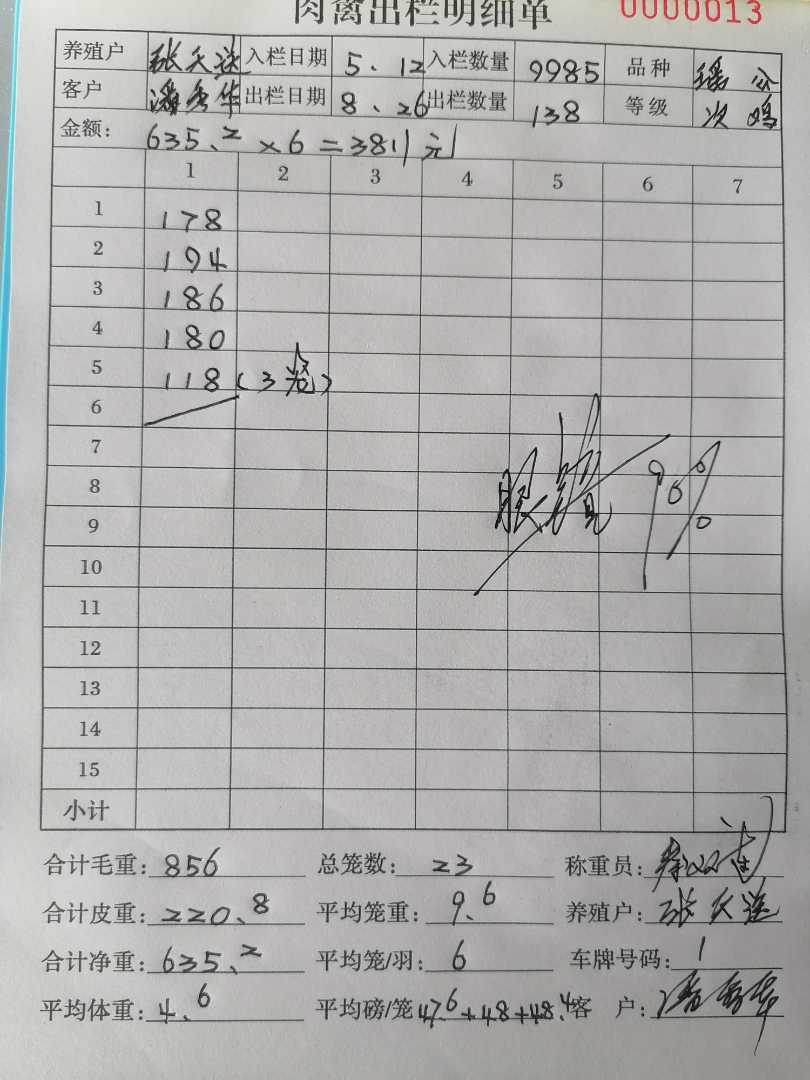 肉禽出栏明细单 0000013
养殖户 张天送 入栏日期 5.12 入栏数量 9985 品种 瑶公
客户 潘秀华 出栏日期 8.26 出栏数量 138 等级 次鸡
金额: 635.2×6=3811元
1 2 3 4 5 6 7
1 178
2 194
3 186
4 180
5 118(3笼)
6
7
8
9
10
11
12
13
14
15
小计
合计毛重: 856 总笼数: 23 称重员:
合计皮重: 220.8 平均笼重: 9.6 养殖户: 张天送
合计净重: 635.2 平均笼/羽: 6 车牌号码: 1
平均体重: 4.6 平均磅/笼 47.6+48+48.4 客户: 潘秀华